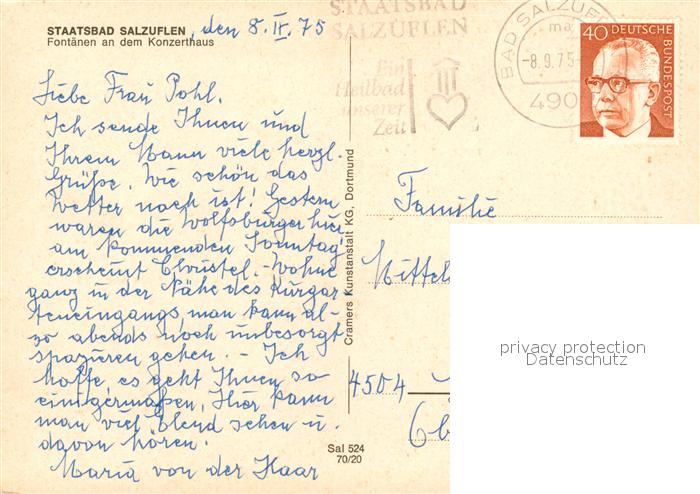 STAATSBAD SALZUFLEN, den 8. IX. 75
Fontänen an dem Konzerthaus
Liebe Frau Pohl.
Ich sende Ihnen und
Ihrem Mann viele herzl.
Grüße. Wie schön das
Wetter noch ist! Gestern
waren die Wolfsburger hier
am kommenden Sonntag
erscheint Christel. - Wohne
ganz in der Nähe des Kurgar
teneingangs, man kann al-
so abends noch unbesorgt
spazieren gehen. - Ich
hoffe, es geht Ihnen so
einigermaßen. Hier kann
man viel Elend sehen u.
davon hören.
Maria von der Haar
Cramers Kunstanstalt KG, Dortmund
Sal 524
70/20
STAATSBAD
SALZUFLEN
Ein
Heilbad
unserer
Zeit
BAD SALZUFL
ma
-8.9.75-
490
40 DEUTSCHE
BUNDESPOST
Familie
Mittel
4504
privacy protection
Datenschutz